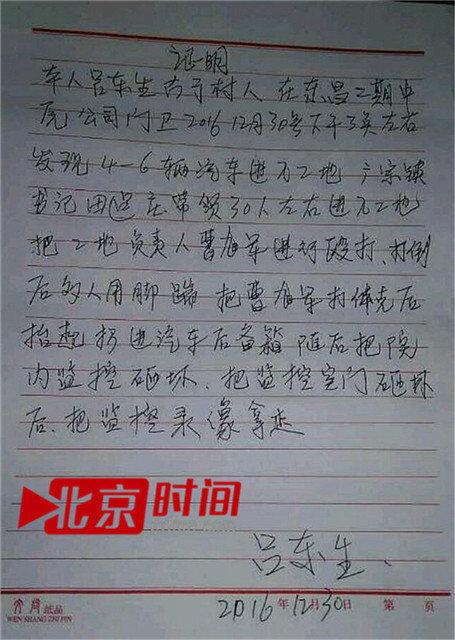 证明
本人吕东生古于村人 在东昌二期中
尾公司门卫2016 12月30号下午3点左右
发现4-6辆汽车进入工地 广宗镇
书记田 庄带领30人左右进入工地
把工地负责人曹 军进行殴打、打倒
后多人用脚踹 把曹 军打休克后
抬起扔进汽车后备箱 随后把院
内监控砸坏、把监控室门砸坏
后、把监控录像拿走
北京时间
吕东生、
2016年12月30日 第 页
纸品
WEN SHANG ZHI PIN